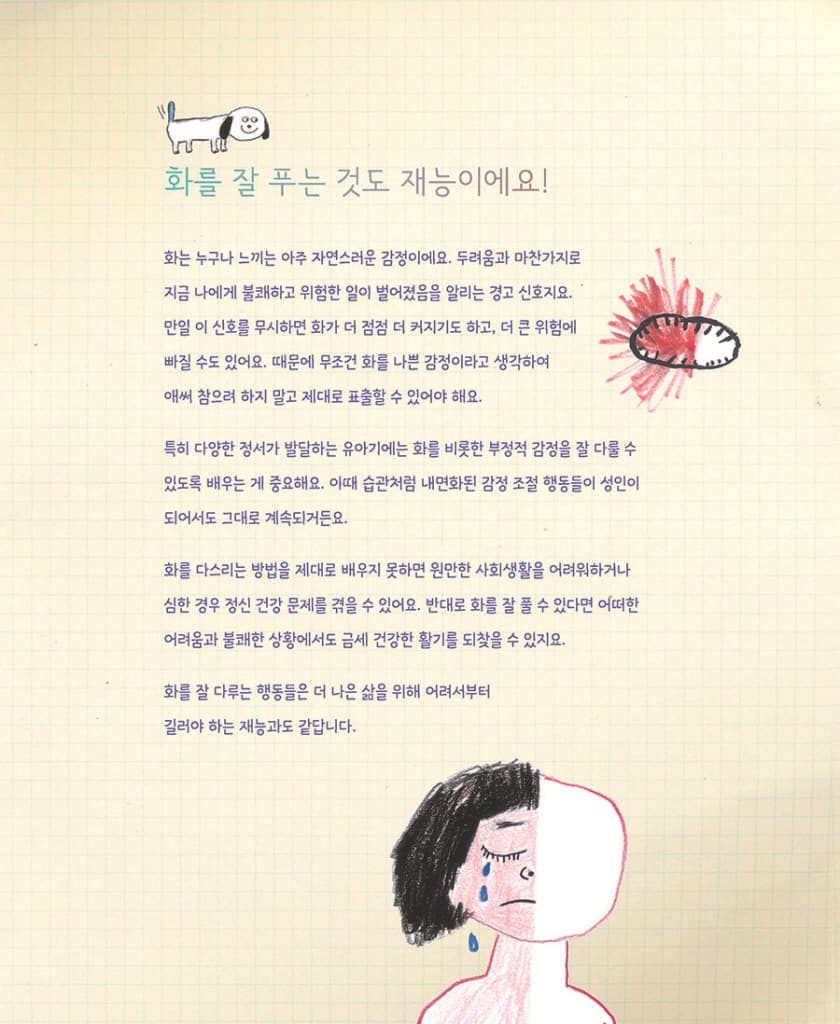 화를 잘 푸는 것도 재능이에요!
화는 누구나 느끼는 아주 자연스러운 감정이에요. 두려움과 마찬가지로
지금 나에게 불쾌하고 위험한 일이 벌어졌음을 알리는 경고 신호지요.
만일 이 신호를 무시하면 화가 더 점점 더 커지기도 하고, 더 큰 위험에
빠질 수도 있어요. 때문에 무조건 화를 나쁜 감정이라고 생각하여
애써 참으려 하지 말고 제대로 표출할 수 있어야 해요.
특히 다양한 정서가 발달하는 유아기에는 화를 비롯한 부정적 감정을 잘 다룰 수
있도록 배우는 게 중요해요. 이때 습관처럼 내면화된 감정 조절 행동들이 성인이
되어서도 그대로 계속되거든요.
화를 다스리는 방법을 제대로 배우지 못하면 원만한 사회생활을 어려워하거나
심한 경우 정신 건강 문제를 겪을 수 있어요. 반대로 화를 잘 풀 수 있다면 어떠한
어려움과 불쾌한 상황에서도 금세 건강한 활기를 되찾을 수 있지요.
화를 잘 다루는 행동들은 더 나은 삶을 위해 어려서부터
길러야 하는 재능과도 같답니다.